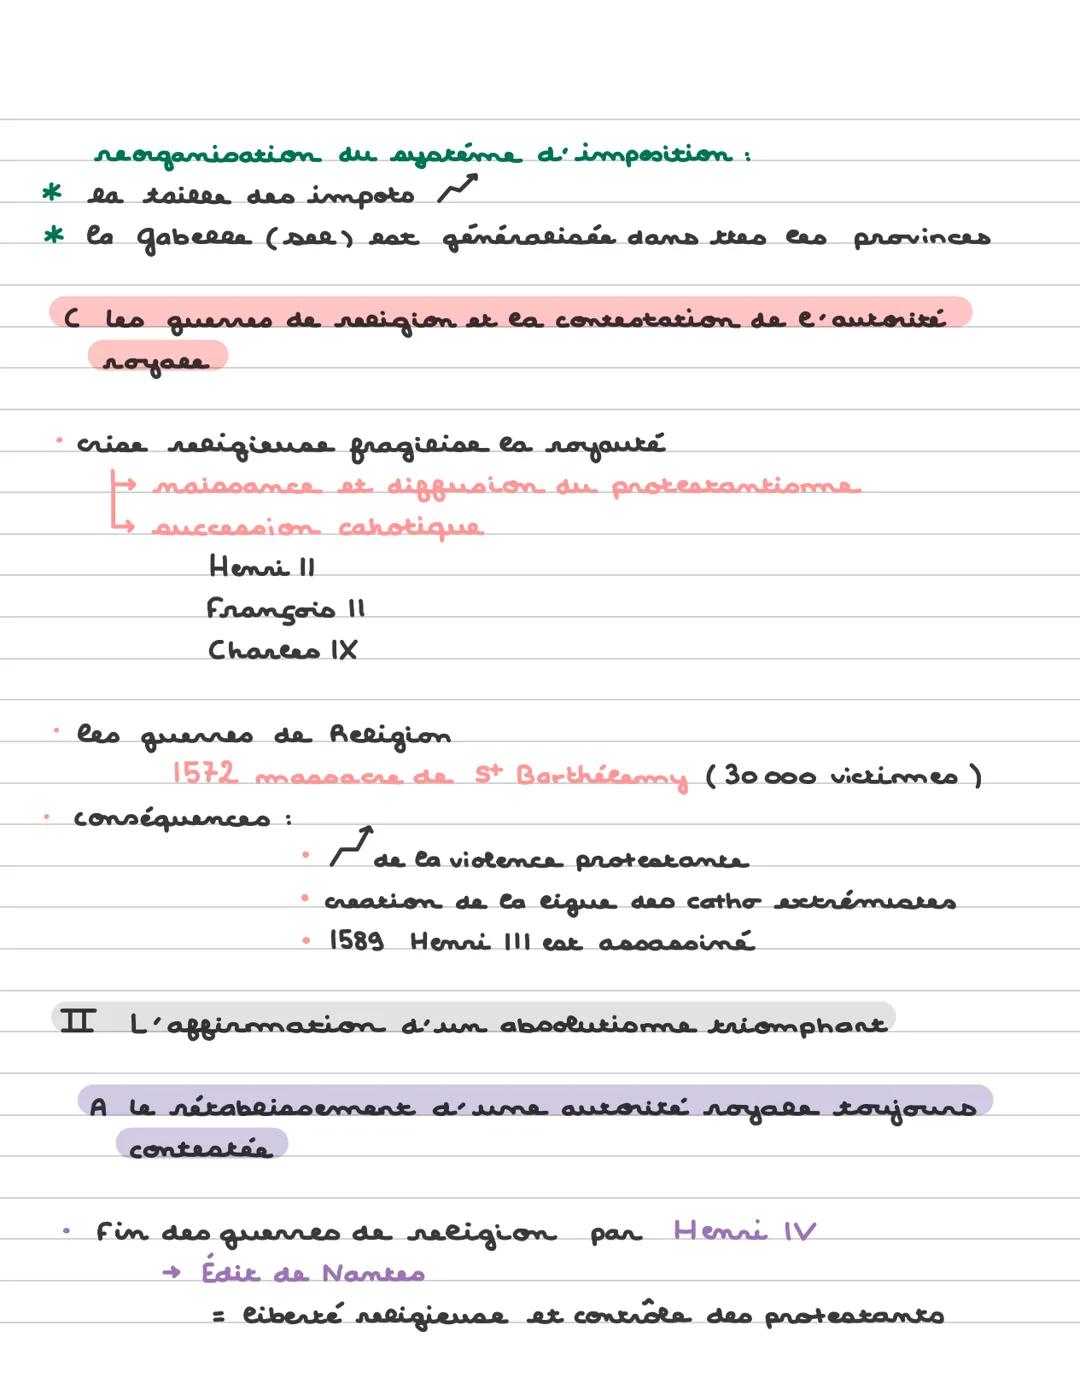 reorganisation du système d'imposition :
* la taille des impots ↗
* la gabelle (sel) est généralisée dans ttes les provinces
C les guerres de religion et la contestation de l'autorité
royale
• crise religieuse fragilise la royauté
→ naissance et diffusion du protestantisme
→ succession cahotique
Henri II
François II
Charles IX
• les guerres de Religion
1572 massacre de St Barthélemy (30 000 victimes)
• conséquences :
• ↗ de la violence protestante
• creation de la ligue des catho extrémistes
• 1589 Henri III est assassiné
II L'affirmation d'un absolutisme triomphant
A Le rétablissement d'une autorité royale toujours
contestée
• Fin des guerres de religion par Henri IV
→ Édit de Nantes
= liberté religieuse et contrôle des protestants